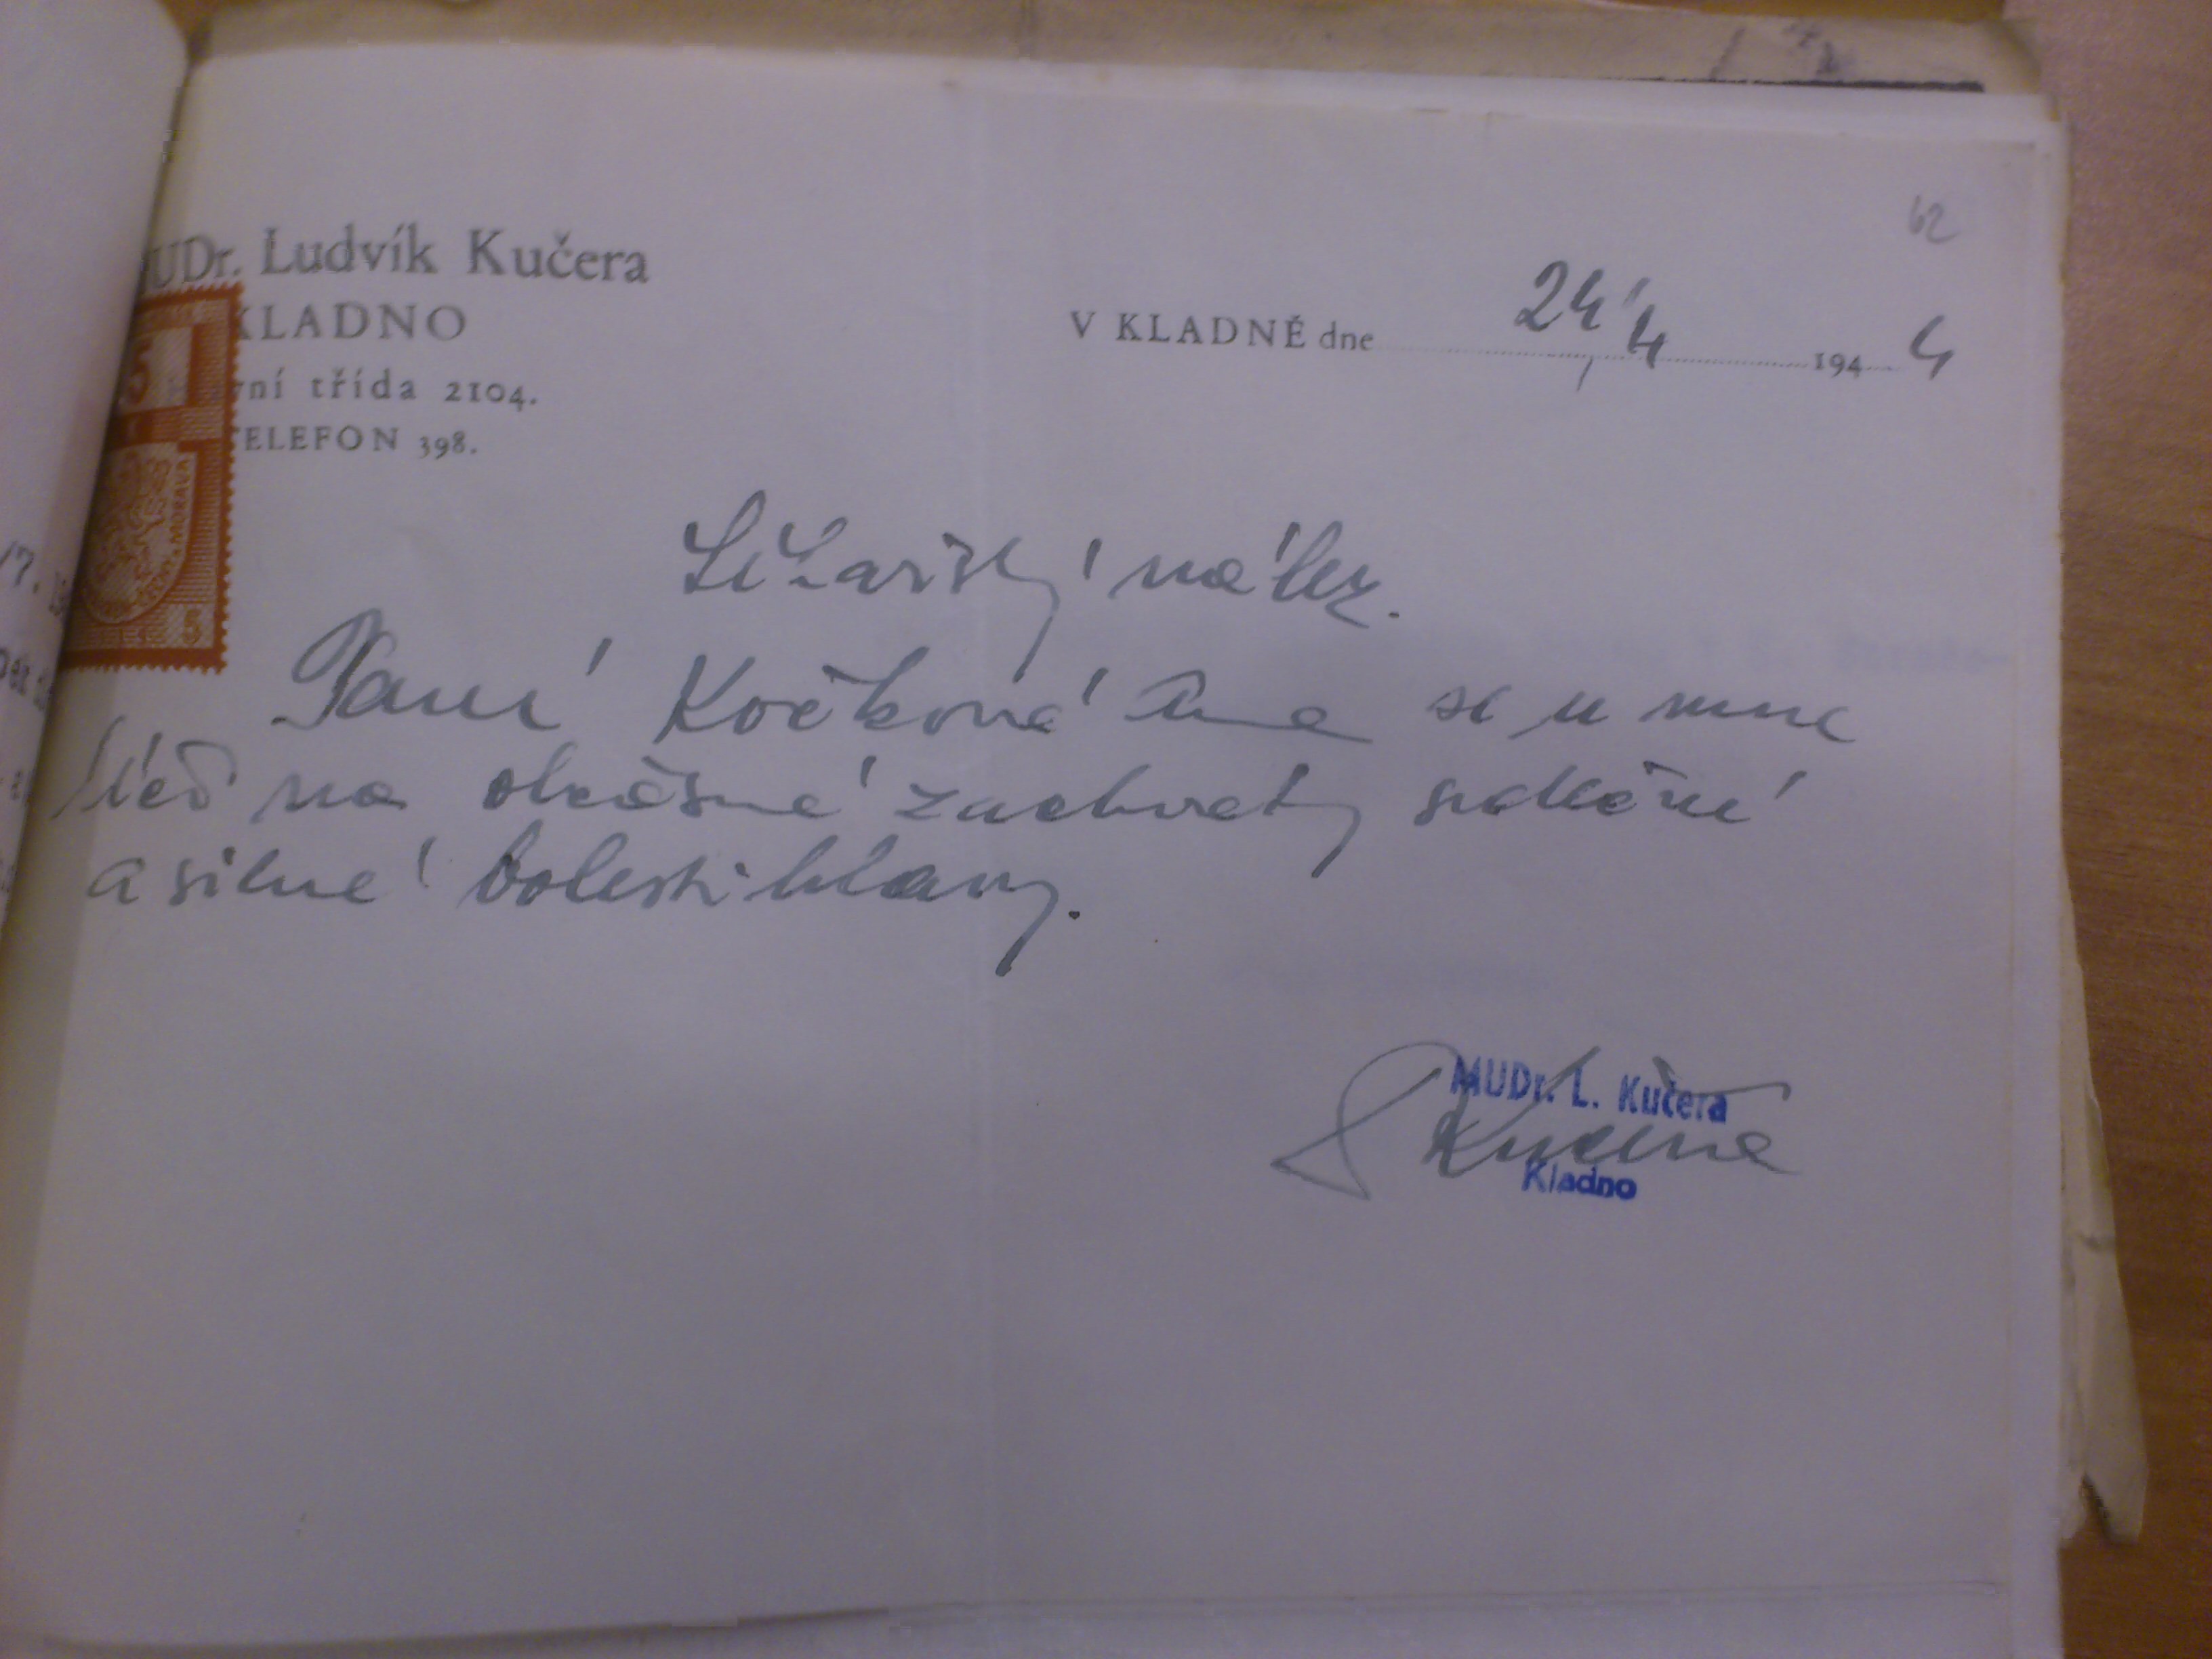 MUDr. Ludvík Kučera
KLADNO
vní třída 2104.
TELEFON 398.
62
V KLADNĚ dne 24/4 1944
Lékařský nález.
Paní Kočková Anna se u mne
léčí na občasné záchvaty srdeční
a silné bolesti hlavy.
MUDr. L. Kučera
Kučera
Kladno
5
MORAVA
5
17.